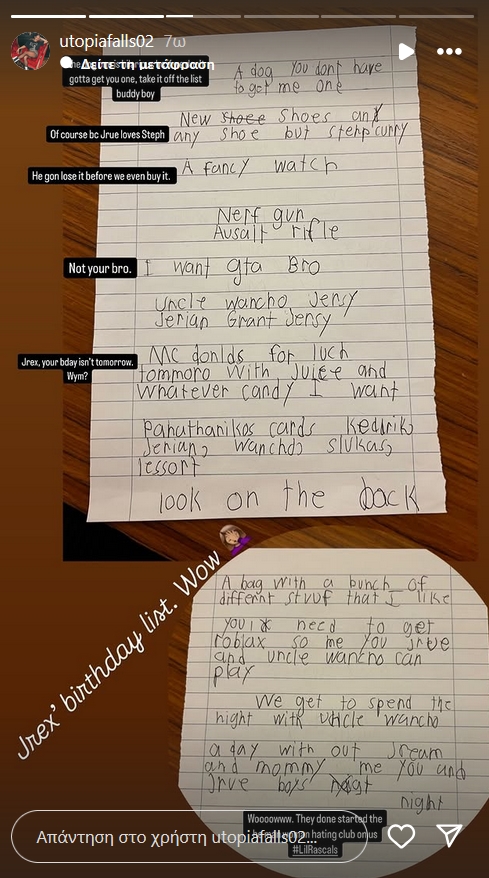 utopiafalls02 7ω
Δείτε τη μετάφραση
gotta get you one, take it off the list
buddy boy
A dog you dont have
to get me one
New shoee shoes and
any shoe but stehp curry
Of course bc Jrue loves Steph
A fancy watch
He gon lose it before we even buy it.
Nerf gun
Ausalt rifle
Not your bro.
I want gta Bro
uncle wancho Jersy
Jerian Grant Jersy
Jrex, your bday isn't tomorrow.
Wym?
Mc donlds for luch
tommoro with juice and
whatever candy I want
Panathanikos cards Kedirik,
Jerian, Wancho, slukas,
lessort
look on the back
Jrex' birthday list. Wow
A bag with a bunch of
differnt stuuf that I like
you need to get
roblax so me you Jrue
and uncle wancho can
play
We get to spend the
night with uncle wancho
a day with out Jream
and mommy me you and
Jrue boys
night
Woooowww. They done started the
hating club on us
#LilRascals
Απάντηση στο χρήστη utopiafalls02...